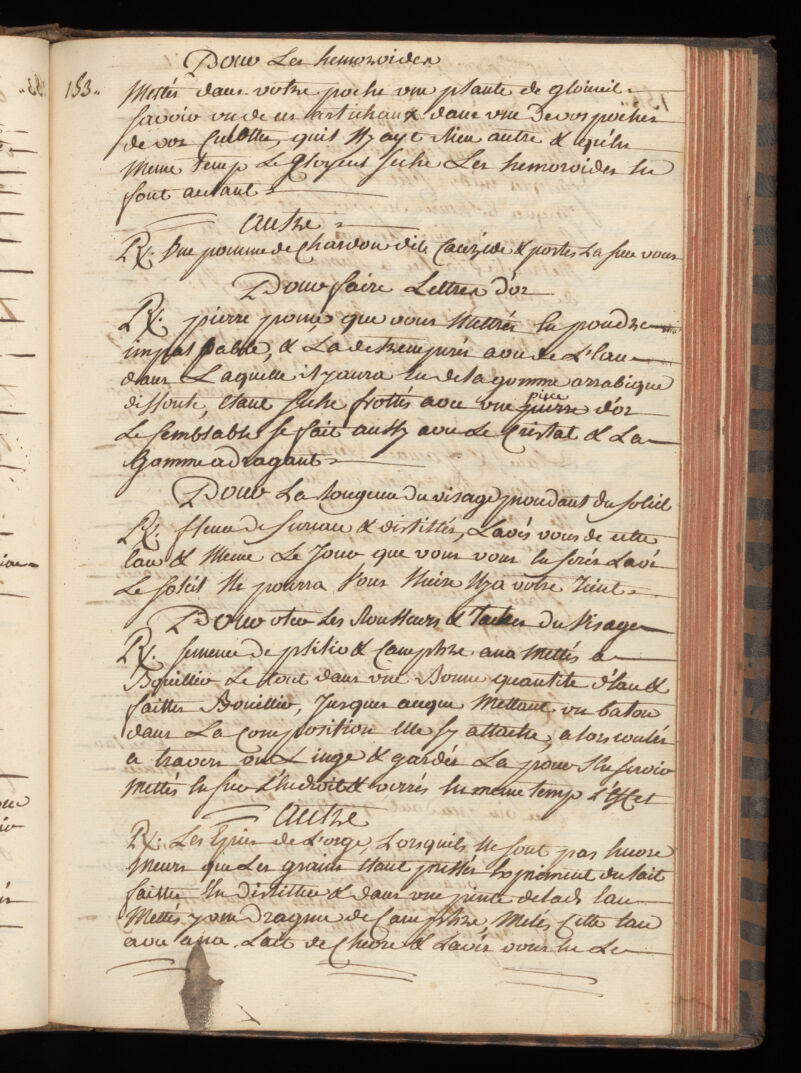 Pour Les hemoroiden
183..
Mettés dans votre poche une plante de
savoir un de ces artichaux dans une De vos poches
de vos Culotte, quil Ny ayt Rien autre &
meme temp Le seche Les hemoroides en
font autant =
Autre =
Rx: Une pomme de Chardon dite & portés La sur vous
Pour faire Lettres d'or
Rx: pierre ponce, que vous Mettrés en poudre
impalpable, & La detremperés avec de L'eau
dans Laquelle il y aura eu de La gomme arrabique
dissoute, etant seche frottés avec une piece d'or
Le semblable se fait aussy avec Le Cristal & La
Gomme adragant =
Pour La Rougeur du visage du soleil
Rx: fleur de sureau & distillés, Lavés vous de cette
eau & meme Le Jour que vous vous en serés Lavé
Le soleil Ne pourra vous Nuire Ny a votre Teint =
Pour oter Les Rousseurs & Taches du Visage
Rx: semence de psilio & Camphre ana mettés a
Boüillir Le tout dans une Bonne quantite d'eau &
faittes Boüillir, Jusques aceque Mettant un baton
dans La Composition elle s'y attache, alors coulés
a travers un Linge & gardés La pour s'en servir
Mettés en sur L'endroit & verrés en meme temp L'effet
Autre
Rx: Les Epics de L'orge, Lorsquils Ne sont pas encore
meurs que Les grains etant pressés du lait
faittes En distiller & dans une pinte de lad. eau
Mettes y une Dragme de Camphre, melés Cette eau
avec ana Lait de Chevre & Lavés vous en Le